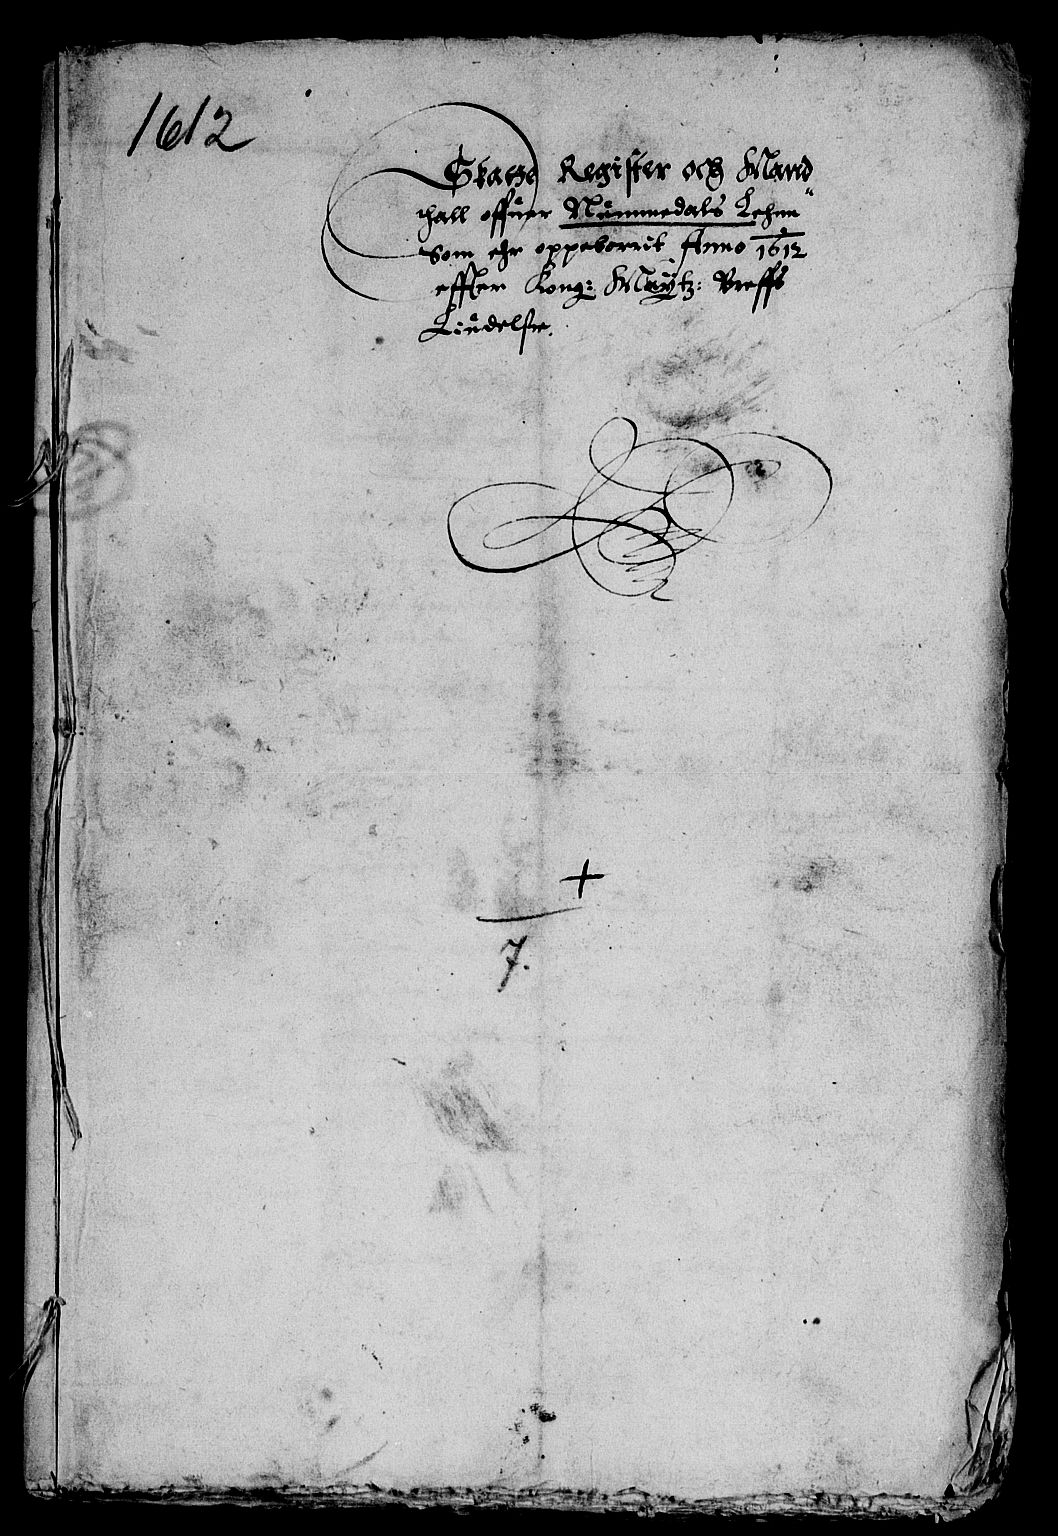 1612
Skatte Register och Mand
thall offuer Nummedals Lehnn
Som ehr oppeborrit Anno 1612
effter Kong: Maÿtz: Breffs
Liudelse.
+
7.